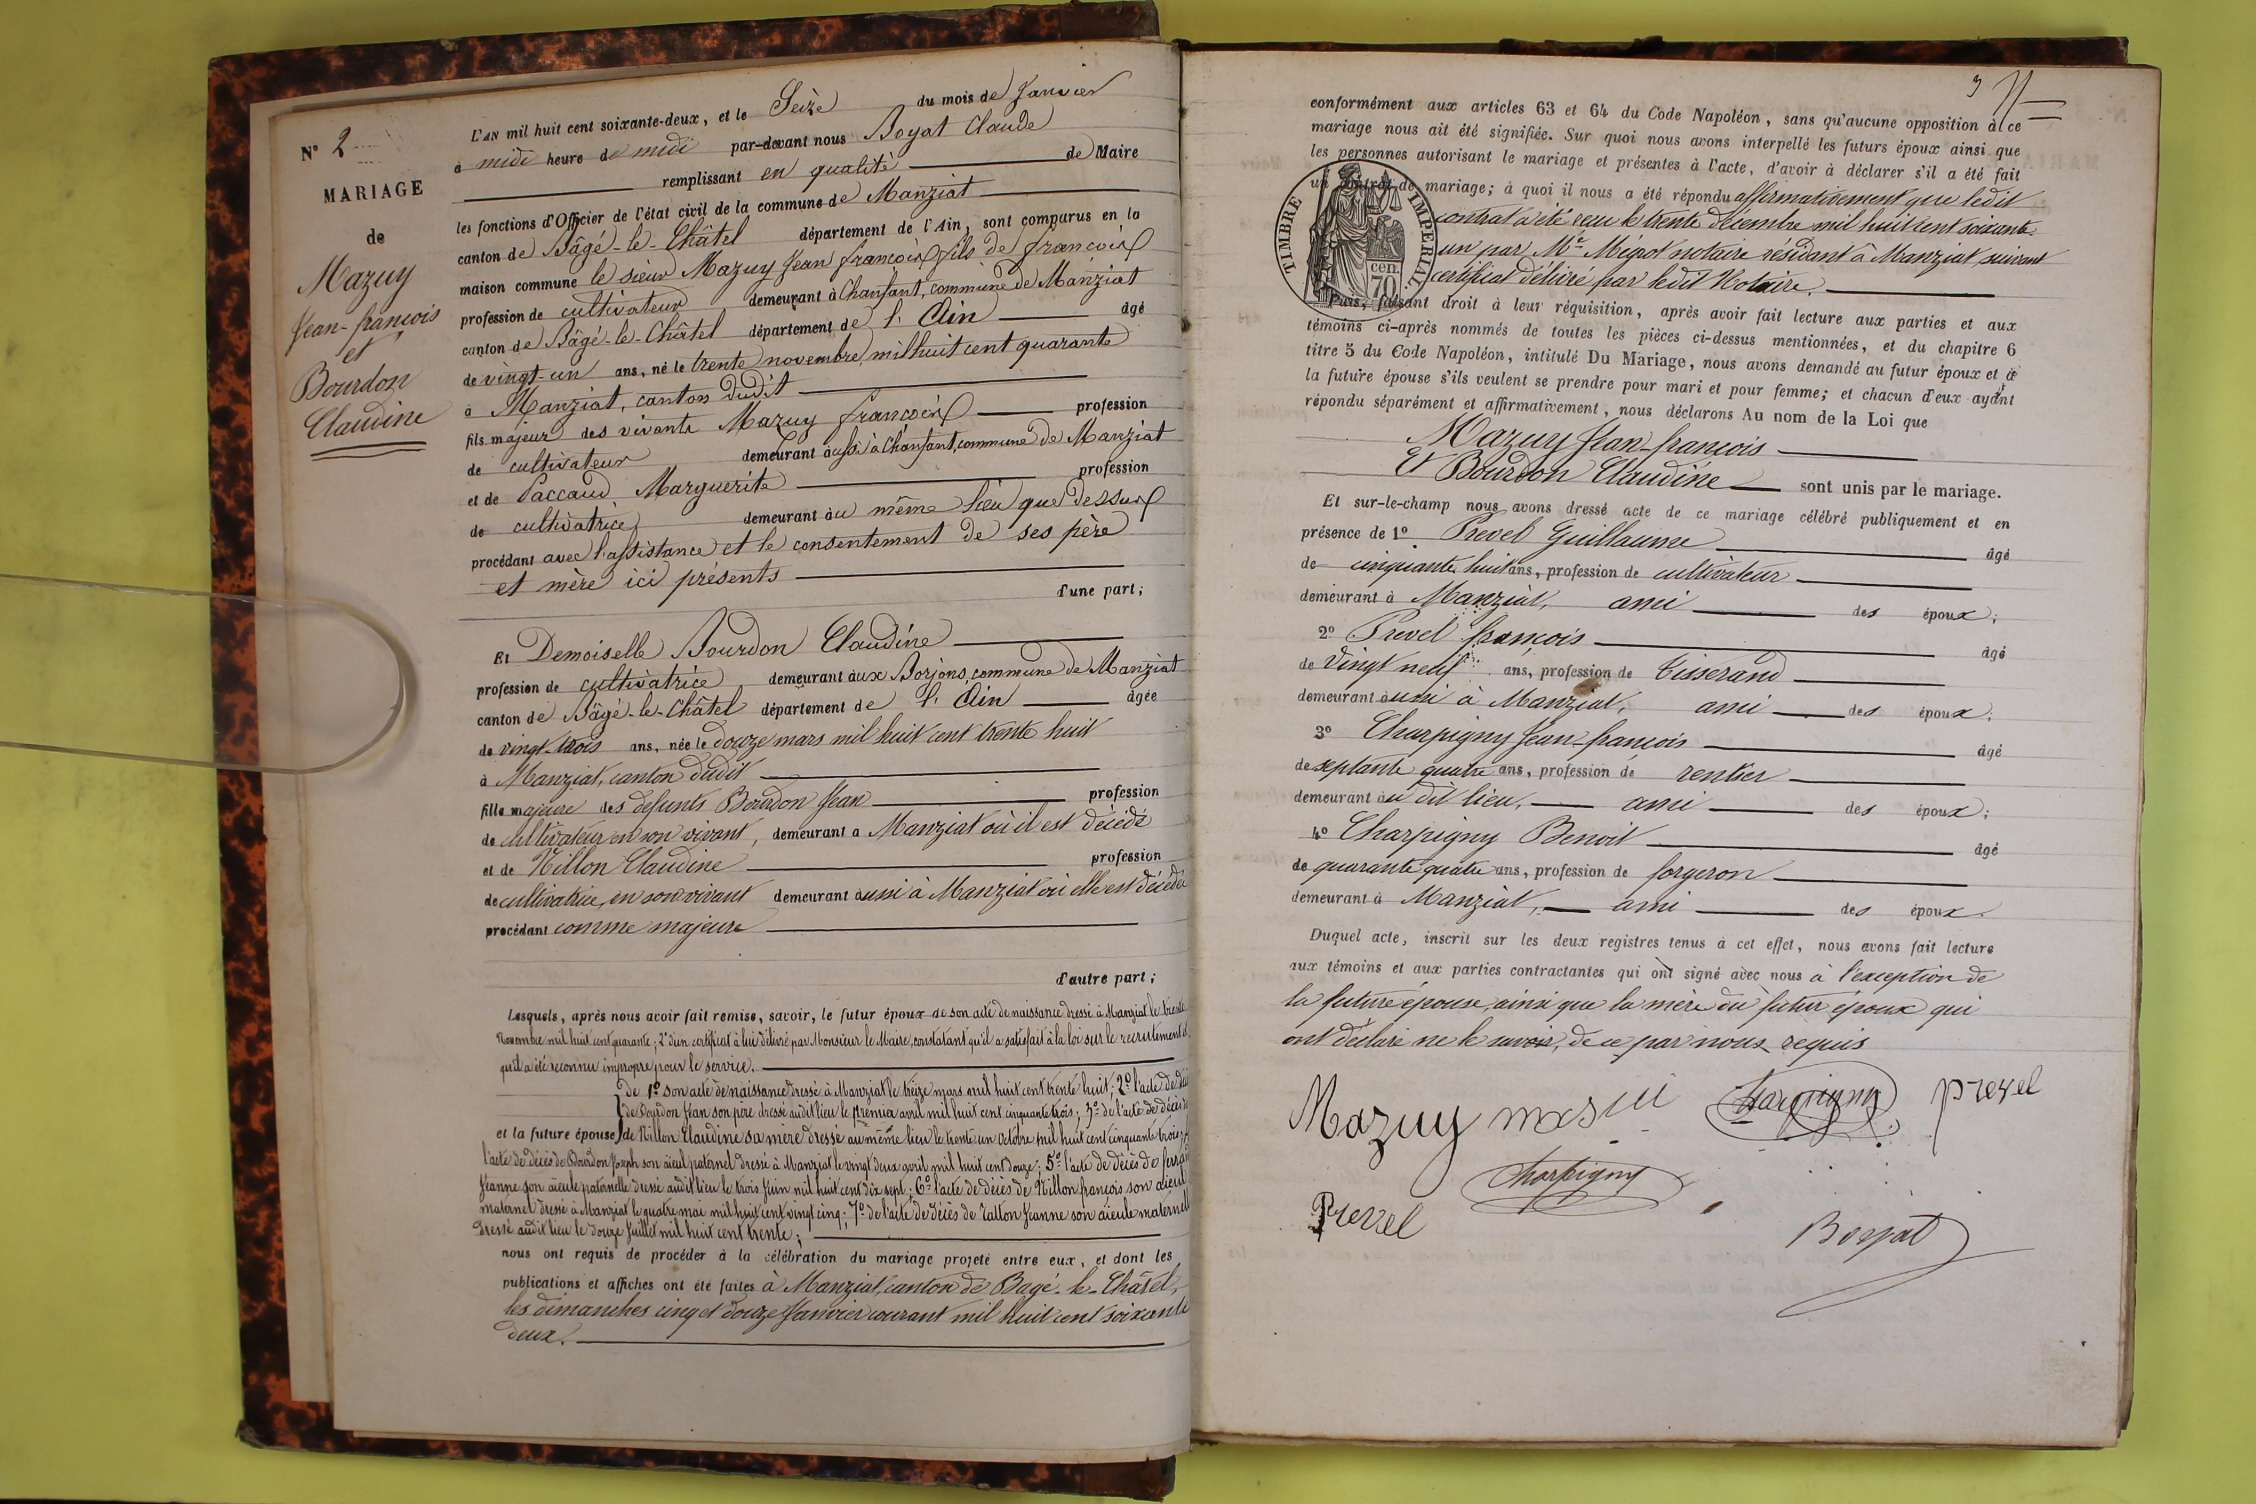 N° 2
MARIAGE
de
Mazuy
Jean-françois
et
Bourdon
Claudine
L'AN mil huit cent soixante-deux, et le Seize du mois de Janvier
à midi heure de midi par-devant nous Boyat Claude
remplissant en qualité de Maire
les fonctions d'Officier de l'état civil de la commune de Manziat
canton de Bâgé-le-Châtel département de l'Ain, sont comparus en la
maison commune le sieur Mazuy Jean françois fils de françois
profession de cultivateur demeurant à Chanfant, commune de Manziat
canton de Bâgé-le-Châtel département de l'Ain âgé
de vingt-un ans, né le trente novembre mil huit cent quarante
à Manziat, canton dudit
fils majeur des vivants Mazuy françois profession
de cultivateur demeurant aussi à Chanfant, commune de Manziat
et de Paccaud Marguerite profession
de cultivatrice demeurant au même lieu que dessus
procédant avec l'assistance et le consentement de ses père
et mère ici présents
d'une part;
Et Demoiselle Bourdon Claudine
profession de cultivatrice, demeurant aux Borjons, commune de Manziat
canton de Bâgé-le-Châtel département de l'Ain âgée
de vingt-trois ans, née le douze mars mil huit cent trente huit
à Manziat, canton dudit
fille majeure des défunts Bourdon Jean profession
de cultivateur en son vivant, demeurant à Manziat où il est décédé
et de Nillon Claudine profession
de cultivatrice, en son vivant demeurant aussi à Manziat où elle est décédée
procédant comme majeure
d'autre part;
Lesquels, après nous avoir fait remise, savoir, le futur époux de son acte de naissance dressé à Manziat le trente
Novembre mil huit cent quarante; 2° d'un certificat à lui délivré par Monsieur le Maire, constatant qu'il a satisfait à la loi sur le recrutement et
qu'il a été reconnu impropre pour le service.
de 1° son acte de naissance dressé à Manziat le treize mars mil huit cent trente huit; 2° l'acte de décès
de Bourdon Jean son père dressé audit lieu le premier avril mil huit cent cinquante trois; 3° de l'acte de décès
et la future épouse de Nillon Claudine sa mère dressé au même lieu le trente un octobre mil huit cent cinquante trois;
l'acte de décès de Bourdon Joseph son aïeul paternel dressé à Manziat le vingt deux avril mil huit cent douze; 5° l'acte de décès de
Jeanne son aïeule paternelle dressé audit lieu le trois Juin mil huit cent dix sept; 6° l'acte de décès de Nillon françois son aïeul
maternel dressé à Manziat le quatre mai mil huit cent vingt cinq; 7° de l'acte de décès de Catton Jeanne son aïeule maternelle
dressé audit lieu le douze Juillet mil huit cent trente;
nous ont requis de procéder à la célébration du mariage projeté entre eux, et dont les
publications et affiches ont été faites à Manziat, canton de Bagé-le-Châtel,
les dimanches cinq et douze Janvier courant mil huit cent soixante
deux.
3
conformément aux articles 63 et 64 du Code Napoléon, sans qu'aucune opposition à ce
mariage nous ait été signifiée. Sur quoi nous avons interpellé les futurs époux ainsi que
les personnes autorisant le mariage et présentes à l'acte, d'avoir à déclarer s'il a été fait
un contrat de mariage; à quoi il nous a été répondu affirmativement que ledit
contrat a été reçu le trente décembre mil huit cent soixante
un par Me Migot notaire résidant à Manziat, suivant
certificat délivré par ledit Notaire.
TIMBRE IMPERIAL
70 cen.
Puis, faisant droit à leur réquisition, après avoir fait lecture aux parties et aux
témoins ci-après nommés de toutes les pièces ci-dessus mentionnées, et du chapitre 6
titre 5 du Code Napoléon, intitulé Du Mariage, nous avons demandé au futur époux et à
la future épouse s'ils veulent se prendre pour mari et pour femme; et chacun d'eux ayant
répondu séparément et affirmativement, nous déclarons Au nom de la Loi que
Mazuy Jean-françois
Et Bourdon Claudine sont unis par le mariage.
Et sur-le-champ nous avons dressé acte de ce mariage célébré publiquement et en
présence de 1° Prevel Guillaume âgé
de cinquante huit ans, profession de cultivateur
demeurant à Manziat, ami des époux;
2° Prevel françois âgé
de vingt neuf ans, profession de tisserand
demeurant aussi à Manziat, ami des époux;
3° Charpigny Jean-françois âgé
de septante quatre ans, profession de rentier
demeurant au dit lieu, ami des époux;
4° Charpigny Benoit âgé
de quarante quatre ans, profession de forgeron
demeurant à Manziat, ami des époux.
Duquel acte, inscrit sur les deux registres tenus à cet effet, nous avons fait lecture
aux témoins et aux parties contractantes qui ont signé avec nous à l'exception de
la future épouse, ainsi que la mère du futur époux qui
ont déclaré ne le savoir, de ce par nous requis
Mazuy Charpigny Prevel
Charpigny
Prevel
Boyat